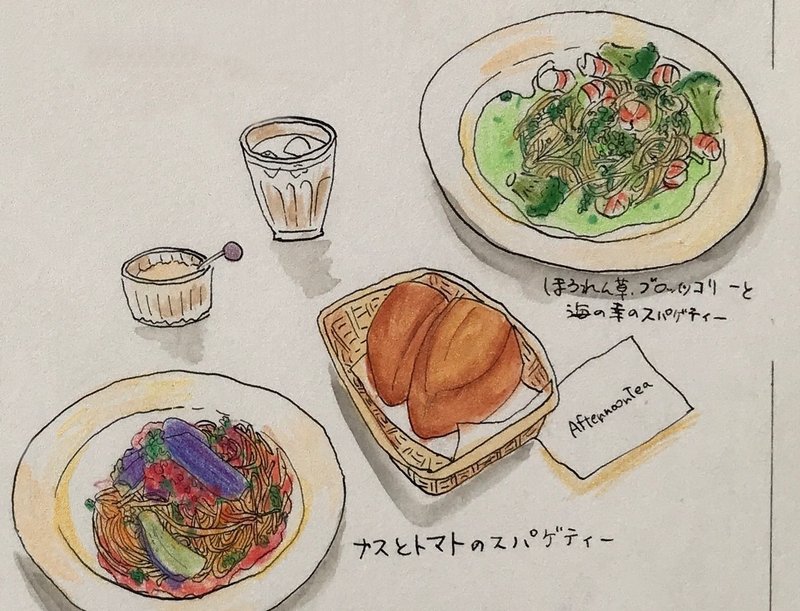 ほうれん草、ブロッコリーと
海の幸のスパゲティー
AfternoonTea
ナスとトマトのスパゲティー